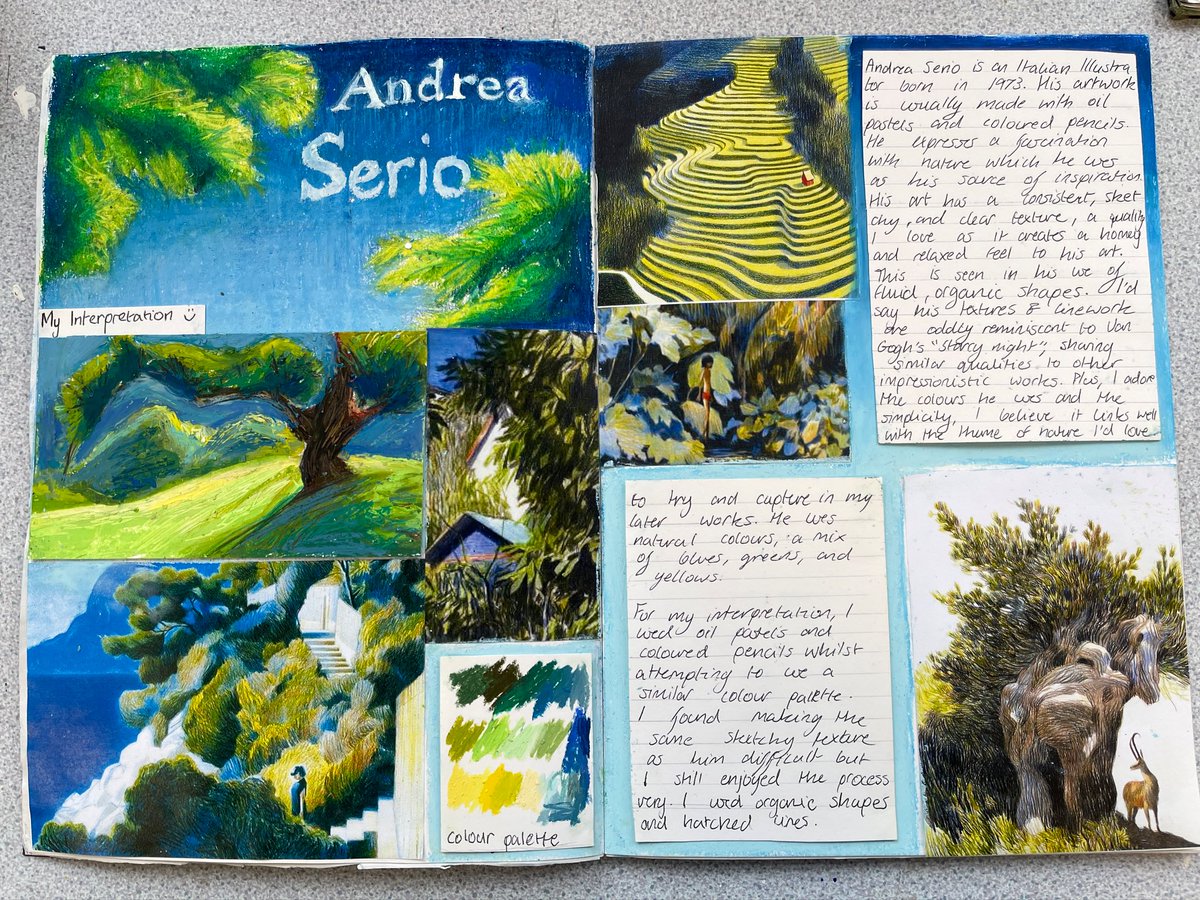 Andrea
Serio
My Interpretation
colour palette
Andrea Serio is an Italian Illustra
tor born in 1973. His artwork
is usually made with oil
pastels and coloured pencils.
He expresses a fascination
with nature which he uses
as his source of inspiration.
His art has a consistent, sket
chy, and clear texture, a quality
I love as it creates a homely
and relaxed feel to his art.
This is seen in his use of
fluid, organic shapes. I'd
say his textures & linework
are oddly reminiscent to Van
Gogh's "Starry night", sharing
similar qualities to other
impressionistic works. Plus, I adore
the colours he uses and the
simplicity, I believe it links well
with the theme of nature I'd love
to try and capture in my
later works. He uses
natural colours, a mix
of blues, greens, and
yellows.
For my interpretation, I
used oil pastels and
coloured pencils whilst
attempting to use a
similar colour palette.
I found making the
same sketchy texture
as him difficult but
I still enjoyed the process
very. I used organic shapes
and hatched lines.